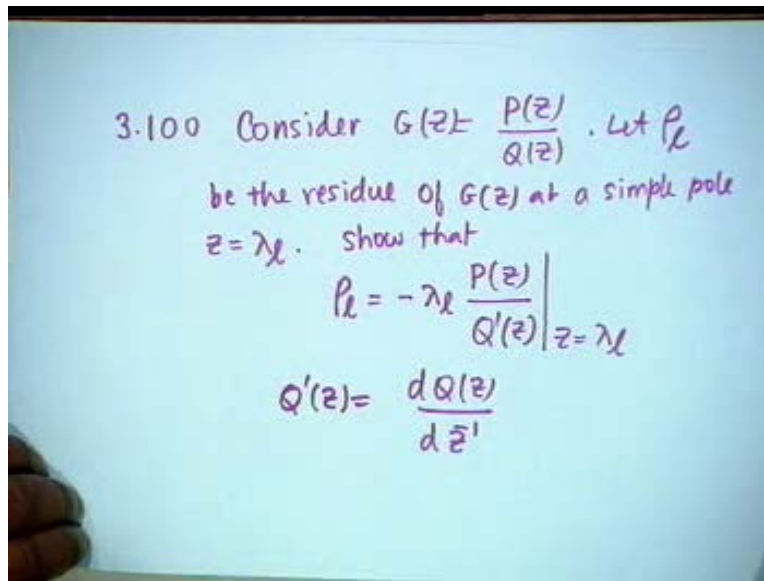 3.100 Consider G(z)= P(z)/Q(z) . Let ρ_ℓ
be the residue of G(z) at a simple pole
z = λ_ℓ. Show that
ρ_ℓ = -λ_ℓ P(z)/Q'(z) |_{z = λ_ℓ}
Q'(z) = dQ(z)/dz^{-1}